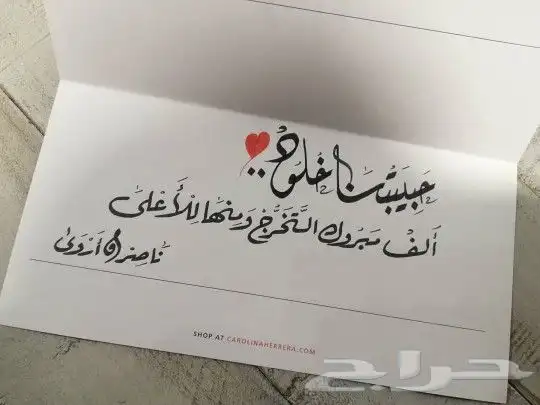 حبيبتنا خلود ..
ألف مبروك التخرج ومنها للأعلى
ناصر و أروى
SHOP AT CAROLINAHERRERA.COM
حراج